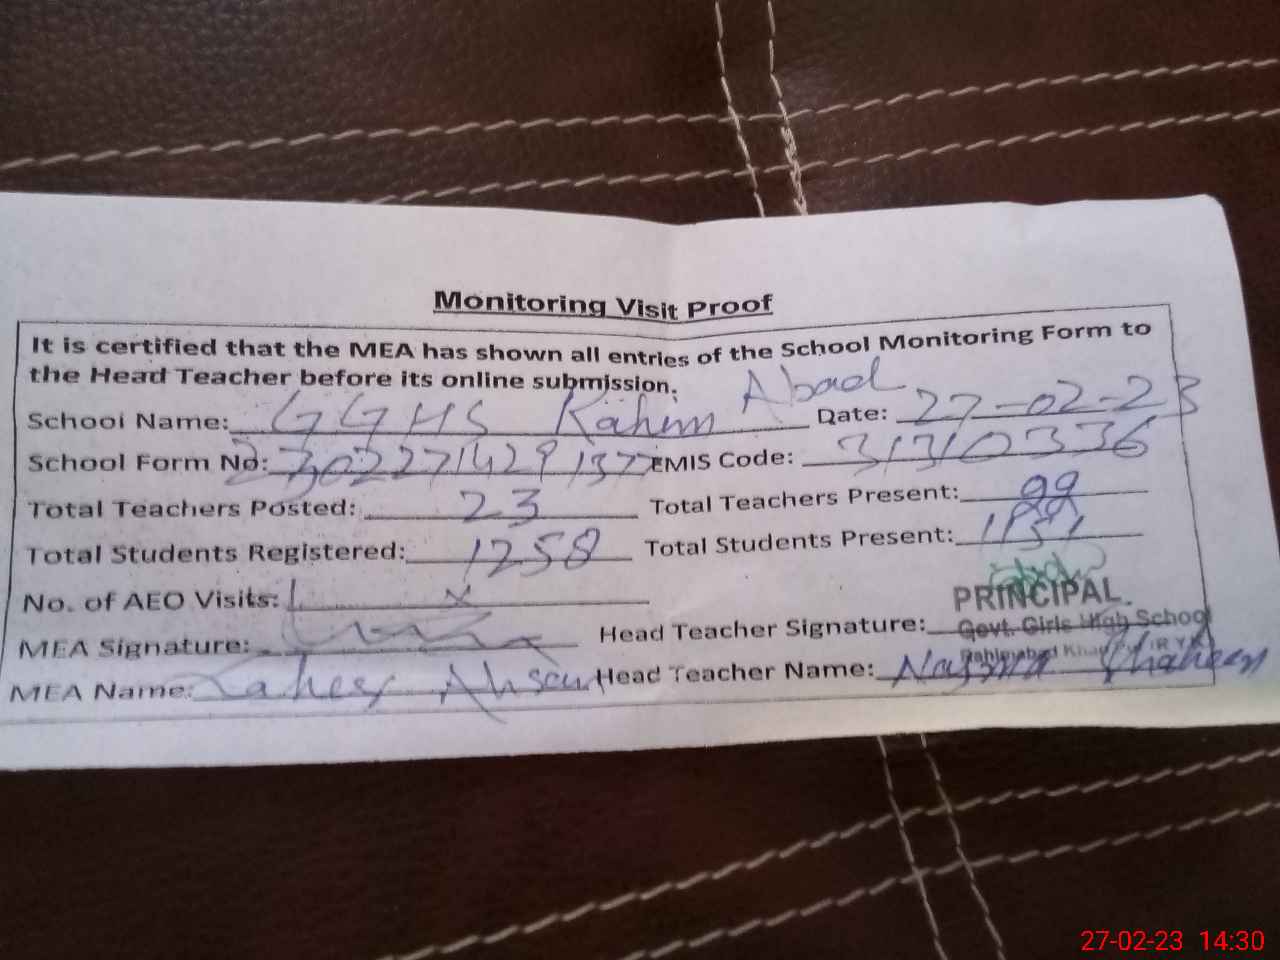 Monitoring Visit Proof
It is certified that the MEA has shown all entries of the School Monitoring Form to
the Head Teacher before its online submission.
School Name: GGHS Rahim Abad Date: 27-02-23
School Form No: EMIS Code: 31310336
Total Teachers Posted: 23 Total Teachers Present:
Total Students Registered: 1258 Total Students Present: 1151
No. of AEO Visits: x
PRINCIPAL
MEA Signature: Head Teacher Signature: Govt. Girls High School
MEA Name: Ahsan Head Teacher Name: Najma Shaheen
27-02-23 14:30